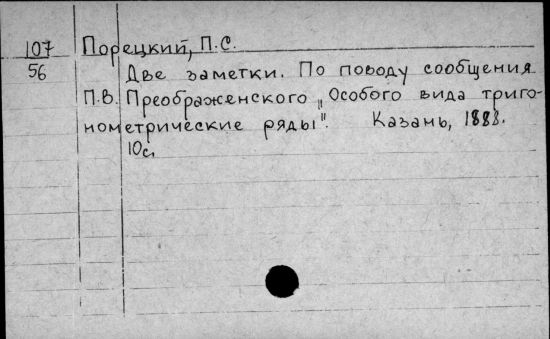 107 Порецкий, П.С.
56 Две заметки. По поводу сообщения
П.В. Преображенского „Особого вида триго-
нометрические ряды". Казань, 1888.
10с.